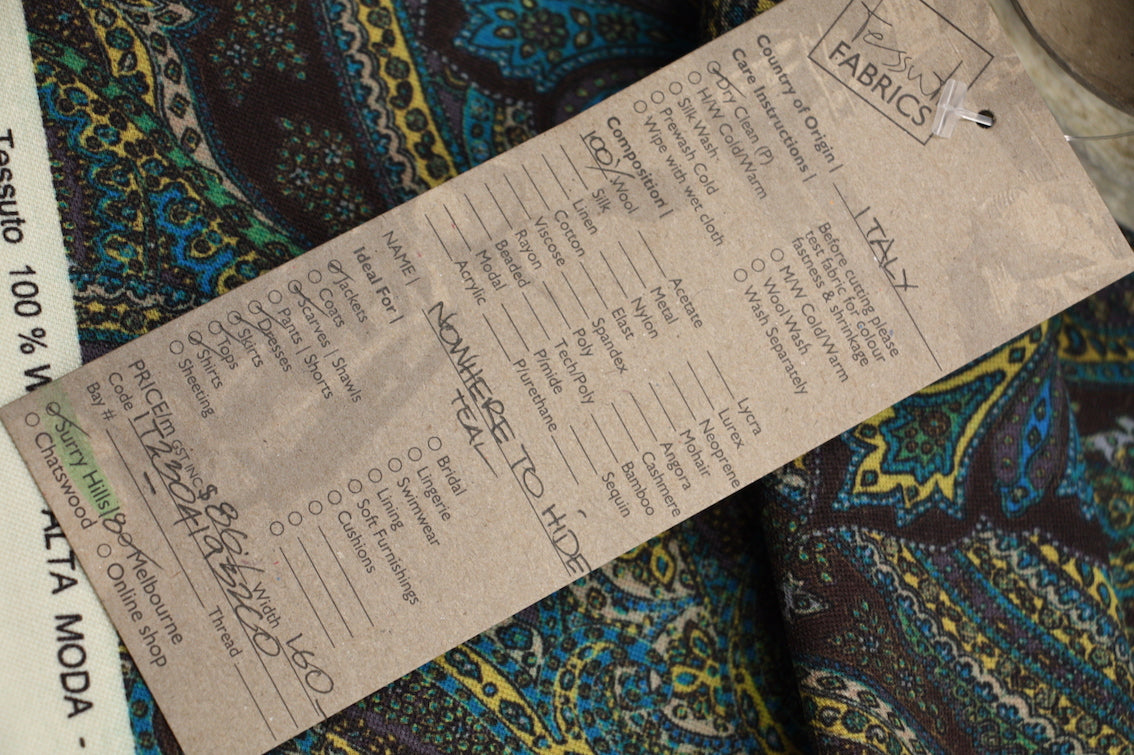 Tessuti
FABRICS
Country of Origin | ITALY
Care Instructions |
Dry Clean (P)
H/W Cold/Warm
Silk Wash
Prewash Cold
Wipe with wet cloth
Before cutting please
test fabric for colour
fastness & shrinkage
M/W Cold/Warm
Wool Wash
Wash Separately
Composition |
100% Wool
Silk
Linen
Cotton
Viscose
Rayon
Beaded
Modal
Acrylic
Acetate
Metal
Nylon
Elast
Spandex
Poly
Tech/Poly
P/mide
P/urethane
Lycra
Lurex
Neoprene
Mohair
Angora
Cashmere
Bamboo
Sequin
NAME | NOWHERE TO HIDE
TEAL
Ideal For |
Jackets
Coats
Scarves | Shawls
Pants | Shorts
Dresses
Skirts
Tops
Shirts
Sheeting
Bridal
Lingerie
Swimwear
Lining
Soft Furnishings
Cushions
PRICE/m GST INC $ Width 1.60
Code
Bay # Thread
Surry Hills Melbourne
Chatswood Online shop
Tessuto 100 %
ALTA MODA -